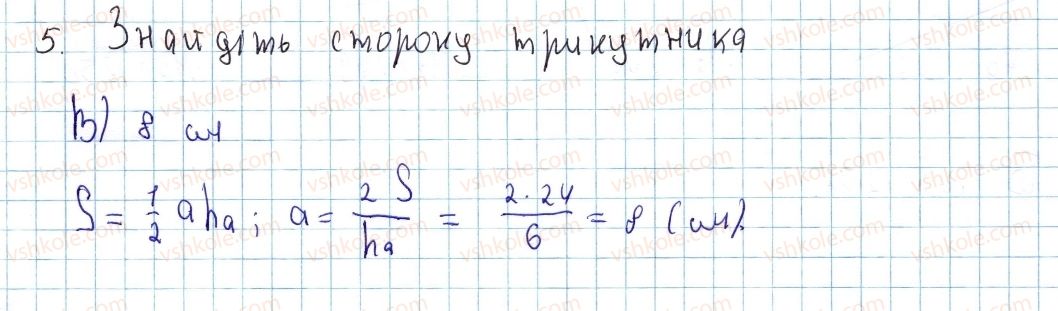 5. Знайдіть сторону трикутника
В) 8 см
S = 1/2 aha; a = 2S/ha = 2·24/6 = 8 (см).